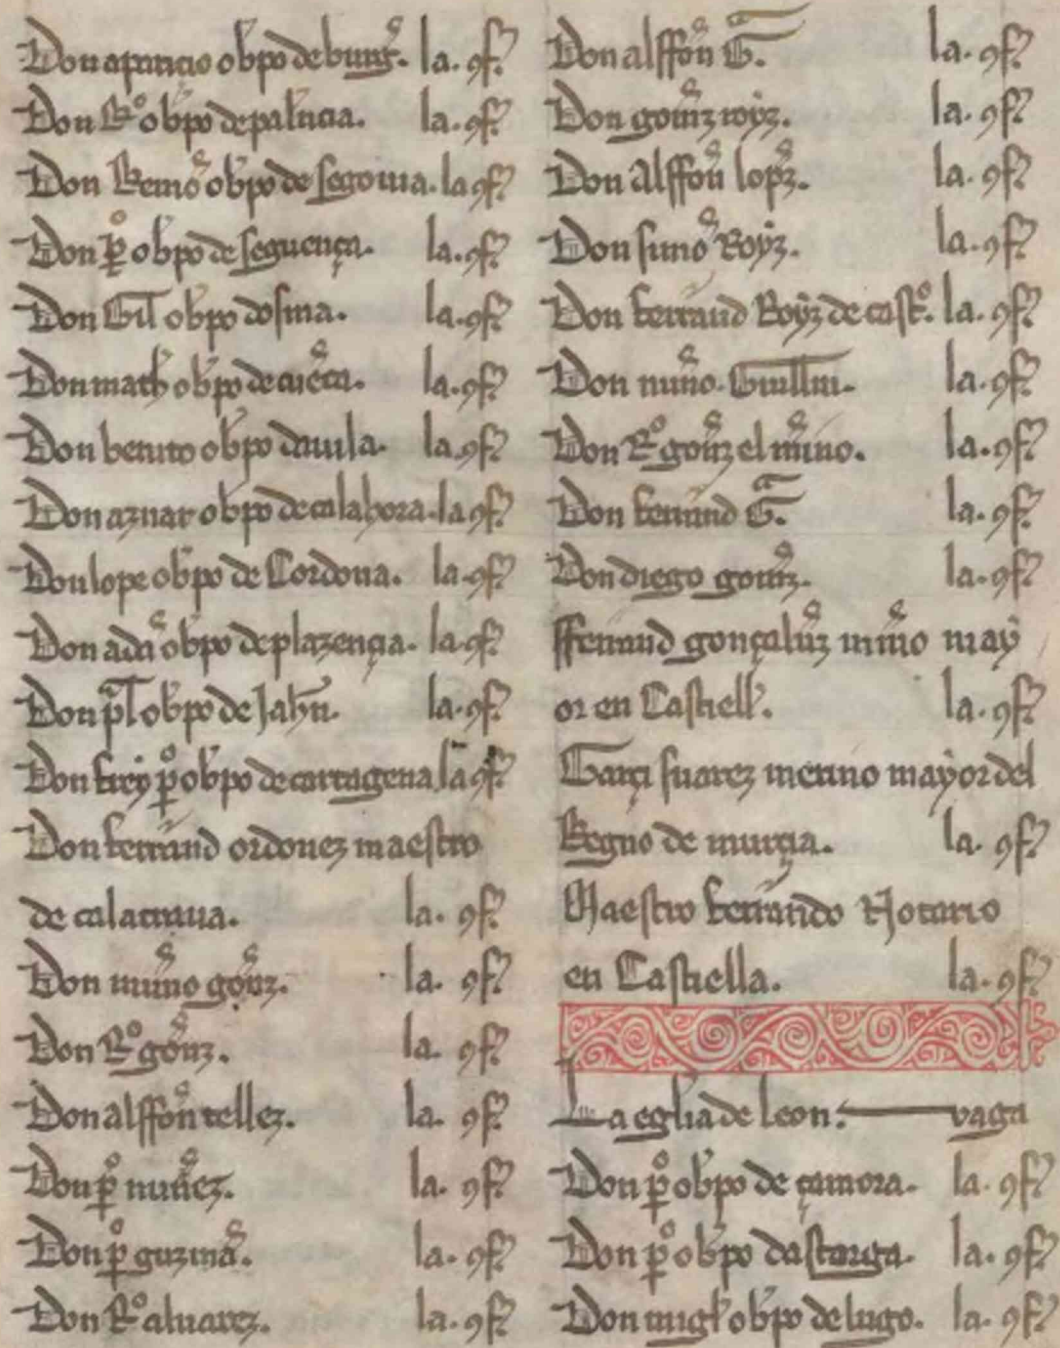 Don aparicio obpo de burg̃. la. ꝯf.
Don Rͦ obpo de palẽcia. la. ꝯf.
Don Remõ obpo de segouia. la ꝯf.
Don pͦ obpo de seguença. la. ꝯf.
Don Gil obpo dosma. la. ꝯf.
Don math obpo de cuẽca. la. ꝯf.
Don benito obpo dauila. la. ꝯf.
Don aznar obpo de calahora. la ꝯf.
Don lope obpo de Cordoua. la. ꝯf.
Don adã obpo de plazençia. la. ꝯf.
Don p̃l obpo de Jahñ. la. ꝯf.
Don frey pͦ obpo de cartagena la ꝯf.
Don ferrand ordonez maestro
de calatraua. la. ꝯf.
Don nuño gõnz. la. ꝯf.
Don Rͦ gõnz. la. ꝯf.
Don alffoñ tellez. la. ꝯf.
Don pͦ nuñez. la. ꝯf.
Don pͦ guzmã. la. ꝯf.
Don Rͦ aluarez. la. ꝯf.
Don alffoñ G̃. la. ꝯf.
Don gom̃z royz. la. ꝯf.
Don Alffoñ lop̃z. la. ꝯf.
Don simõ Royz. la. ꝯf.
Don ferrand Royz de castͦ. la. ꝯf.
Don nuño. Guillm. la. ꝯf.
Don Rͦ gom̃z el niño. la. ꝯf.
Don ferrand G̃. la. ꝯf.
Don diego gom̃z. la. ꝯf.
fferrand gonçalũz m̃ino may
or en Castiell. la. ꝯf.
Garçi suarez merino mayor del
Regno de murçia. la. ꝯf.
Maestro ferrando Notario
en Castiella. la. ꝯf.
La eglia de leon. vaga
Don pͦ obpo de çamora. la. ꝯf.
Don pͦ obpo dastorga. la. ꝯf.
Don migl obpo de lugo. la. ꝯf.